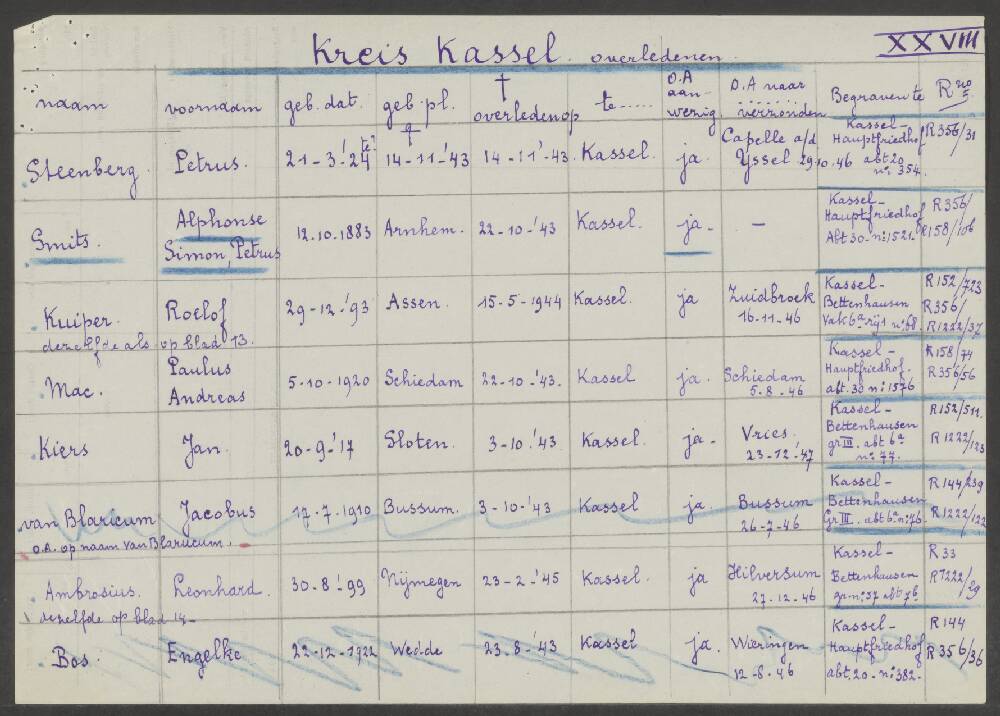 XXVIII
Kreis Kassel. overledenen.
naam voornaam geb. dat. geb. pl. † overleden op te...... O.A aan-wezig O.A naar verzonden Begraven te R no s
Steenberg. Petrus. 21-3-'24 te? † 14-11-'43 14-11-'43. Kassel. ja. Capelle a/d Yssel 29.10.46 Kassel- Hauptfriedhof abt 20 no 354. R356/31
Smits. Alphonse Simon, Petrus 12.10.1883 Arnhem. 22-10-'43 Kassel. ja. - Kassel- Hauptfriedhof Abt 30-no:1521. R356/ R158/106
Kuiper. Roelof 29-12-'93 Assen. 15-5-1944 Kassel. ja Zuidbroek 16-11-46 Kassel- Bettenhausen Vak 6a rij 1 no 68. R152/723 R356/ R1222/37
dezelfde als op blad 13.
Mac. Paulus Andreas 5-10-1920 Schiedam 22-10-'43. Kassel ja. Schiedam 5-8-46 Kassel- Hauptfriedhof. abt. 30 no: 1576 R158/74 R356/56
Kiers Jan. 20-9-'17 Sloten. 3-10-'43 Kassel. ja- Vries. 23-12-'47 Kassel- Bettenhausen gr III. abt 6a no: 77. R152/511. R1222/123
van Blaricum Jacobus 17-7-1910 Bussum. 3-10-'43 Kassel ja. Bussum 26-7-46 Kassel- Bettenhausen Gr III. abt 6a no: 76. R144/239 R1222/122
O.A. op naam van Blaricum.
Ambrosius. Leonhard. 30-8-'99 Nijmegen 23-2-'45 Kassel. ja Hilversum 27-12-46 Kassel- Bettenhausen gr no: 37 abt 7b. R33 R1222/29
dezelfde op blad 14-
Bos. Engelke 22-12-1922 Wedde 23.8-'43 Kassel ja. Wieringen 12-8-46 Kassel- Hauptfriedhof abt. 20-no: 382. R144 R356/36